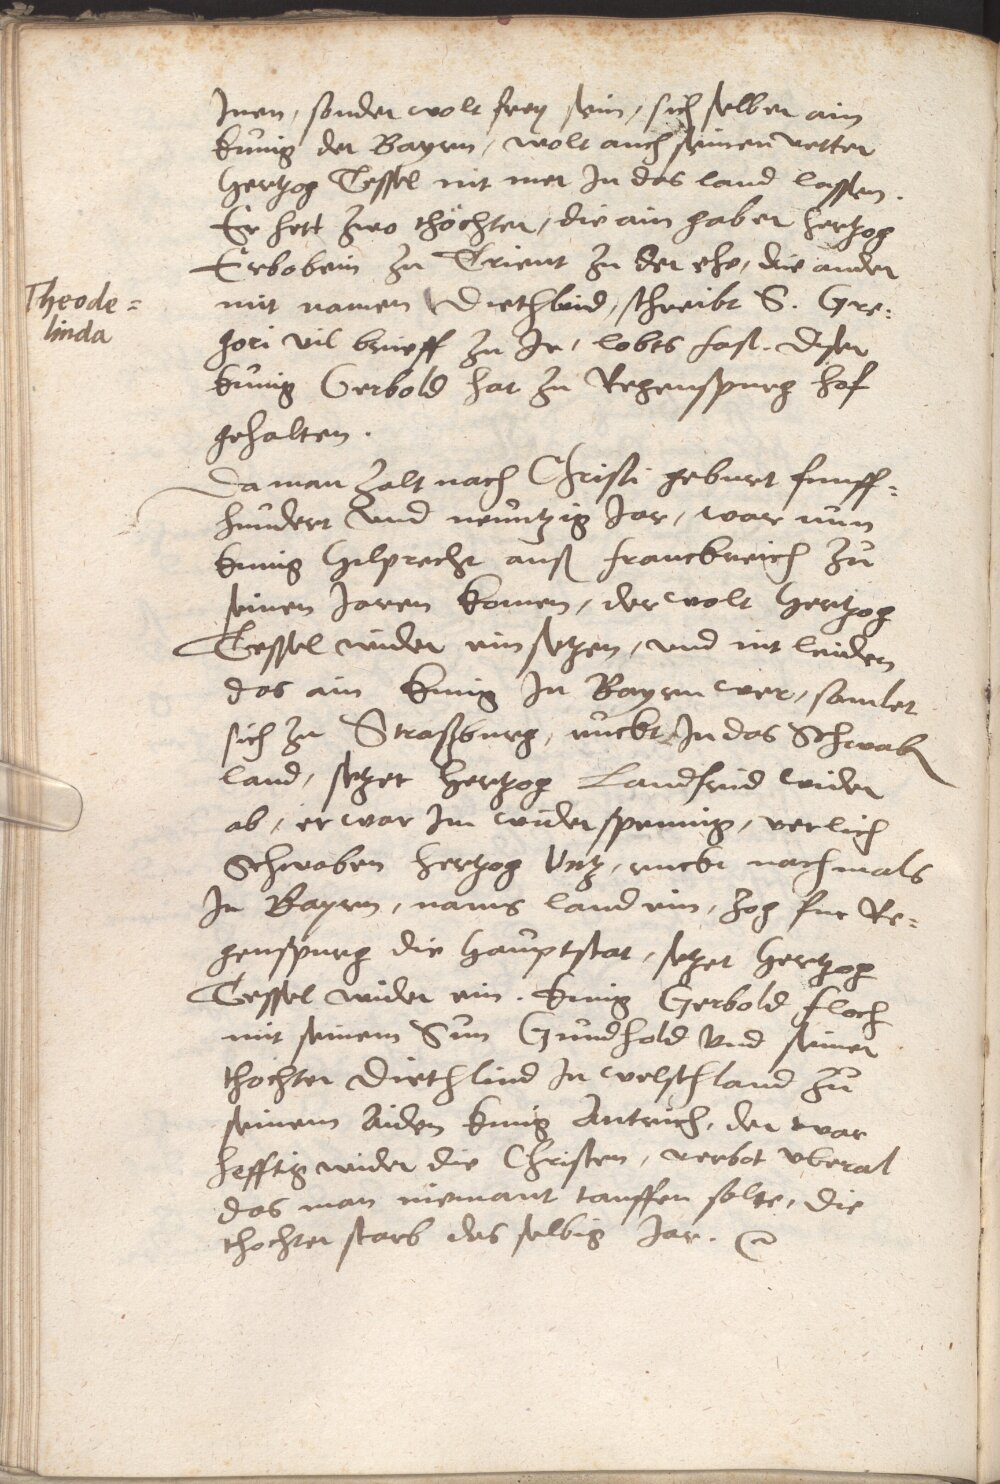 Inen, sonder wolt frey sein, sich selber ain
künig der Bayrn, wolt auch seinen vetter
hertzog Tessel nit mer In das land lassen.
Er hett zwo thöchter, die ain gab er hertzog
Erbobein zu Trient zu der ehe, die ander
mit namen Diethlind, schreibt S. Gre:
Theode=
linda
gori vil brieff zu Ir, lobts fast. Diser
künig Gerbold hat zu Regenspurg hof
gehalten.
Da man Zalt nach Christi geburt funff=
hundert vnd neuntzig Jar, war nun
künig Hilprecht auß franckreich zu
seinen Jaren komen, der wolt hertzog
Tessel wider ein setzen, vnd nit leiden
das ain künig In Bayrn wer, samlet
sich zu Straßburg, ruckt In das Schwab
land, setzet hertzog Landfrid wider
ab, er war Im widerspennig, verlich
Schwaben hertzog Vntz, ruckt nachmals
In Bayrn, nams land ein, zog fur Re=
genspurg die hauptstat, setzet hertzog
Tessel wider ein. künig Gerbold floch
mit seinem Sun Gundhold vnd seiner
thochter Diethlind In welschland zu
seinem Aiden künig Antrich, der war
hefftig wider die Christen, verbot vberal
das man niemant tauffen solte, die
thochter starb das selbig Jar.